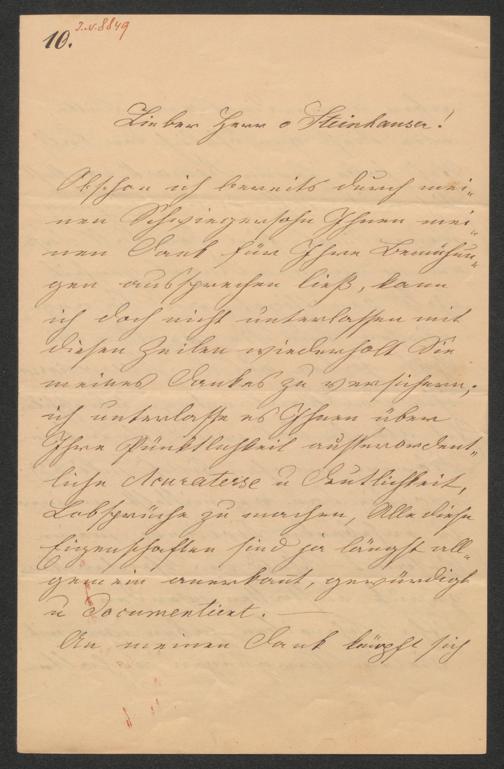 10.
J.N.8849
Lieber Herr v Steinhauser!
Obschon ich bereits durch mei-
nen Schwiegersohn Ihnen mei-
nen Dank für Ihre Bemühun-
gen aussprechen ließ, kann
ich doch nicht unterlassen mit
diesen Zeilen wiederholt Sie
meines Dankes zu versichern;
ich unterlasse es Ihnen über
Ihre Pünktlichkeit ausserordent-
liche Acuratesse u Deutlichkeit,
Lobsprüche zu machen, Alle diese
Eigenschaften sind ja längst all-
gemein anerkant, gewürdigt
u Documentiert. —
An meinen Dank knüpft sich